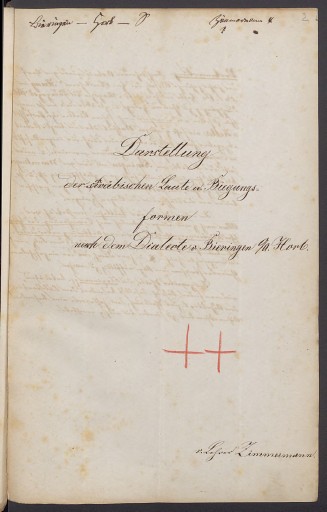 Bieringen — Horb — S
2
Darstellung
der schwäbischen Laute u Beugungs-
formen
nach dem Dialecte v. Bieringen O/A. Horb.
++
v. Lehrer Zimmermann